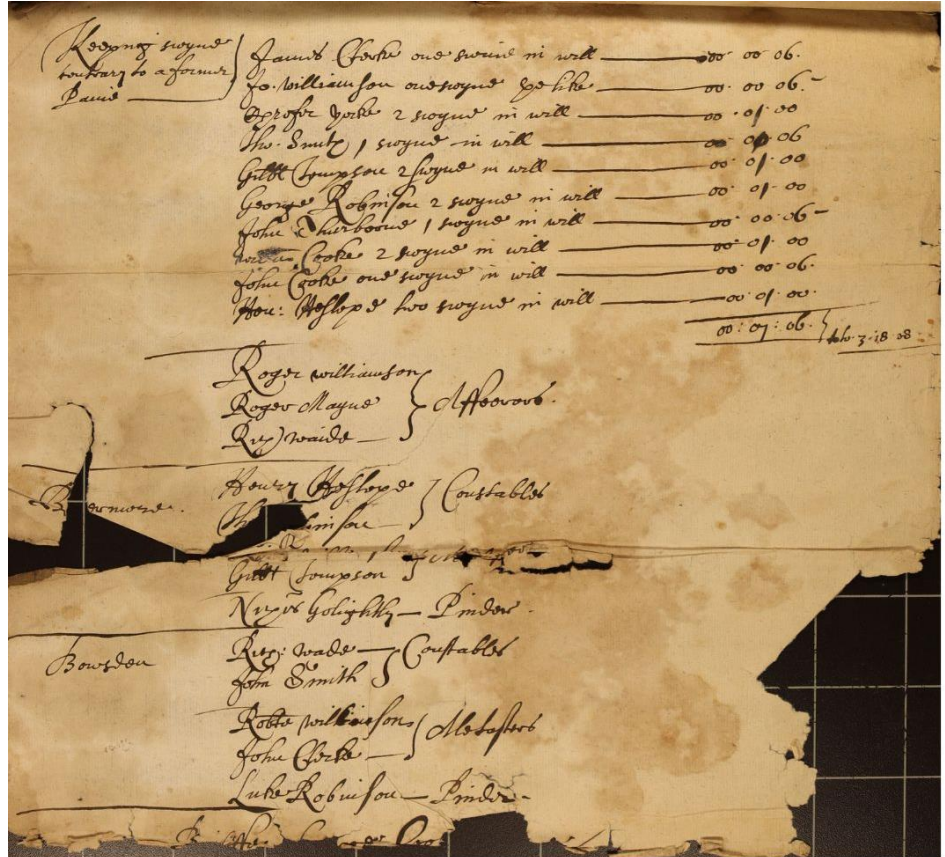 Keeping swyne
contrary to a former
Paine
James Clerke one swine in will 00 00 06.
Jo. Williamson one swyne ye like 00 00 06
Yorke 2 swyne in will 00 01 00
Tho. Smith 1 swyne in will 00 00 06
Gilbt Tompson 2 swyne in will 00 01 00
George Robinson 2 swyne in will 00 01 00
John Thurboorne 1 swyne in will 00 00 06
Cooke 2 swyne in will 00 01 00
John Cooke one swyne in will 00 00 06.
Hen: Heslope two swyne in will 00 01 00.
00: 07: 06. 3-18 08
Roger Williamson
Roger Mayne Affeerors.
Rich waide
Henry Heslope Constables
Gilbt Tompson
Golightly Pinder.
Bowsden
Ric: wade Constables
John Smith
Robte Williamson Aletasters
John Clerke
Luke Robinson Pinder